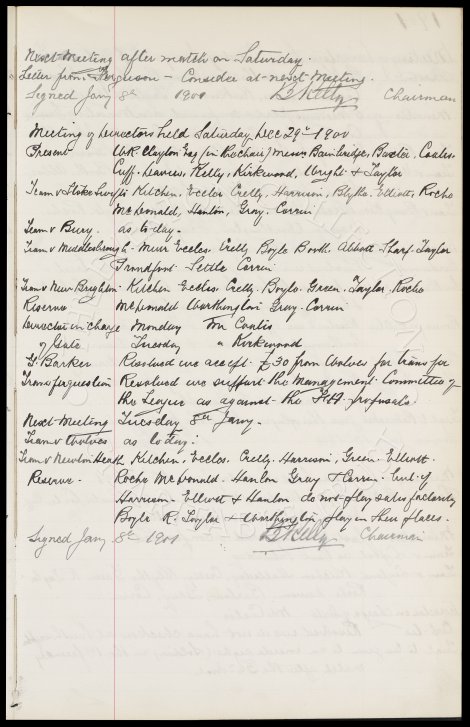 Next Meeting after match on Saturday.
Letter from Ferguson - Consider at next Meeting.
Signed Jany 8th 1901 Kelly Chairman
Meeting of Directors held Saturday Dec 29th 1900
Present W.R. Clayton Esq (in the chair) Messrs Bainbridge, Baxter, Coates
Cuff. Davies, Kelly, Kirkwood, Wright & Taylor
Team v Stoke Kitchen, Eccles Crelly, Harrison, Blythe, Elliott, Roche
McDonald, Hanlon, Gray. Corrin
Team v Bury. as to-day.
Team v Middlesbrough - Muir Eccles Crelly Boyle Booth Abbott Sharp Taylor
Proudfoot Settle Corrin
Team v New Brighton Kitchen Eccles. Crelly. Boyle. Green. Taylor. Roche
Reserve McDonald Worthington Gray. Corrin
Director in charge Monday Mr Coates
of Gate Tuesday " Kirkwood
G. Barker Resolved we accept £30 from Wolves for transfer
Transfer question Resolved we support the Management Committee of
the League as against the proposals
Next Meeting Tuesday 8th Jany.
Team v Wolves as to day.
Team v Newton Heath Kitchen, Eccles. Crelly. Harrison, Green. Elliott.
Reserve. Roche McDonald. Hanlon Gray & Corrin. but if
Harrison. Elliott & Hanlon do not play satisfactorily
Boyle R. Taylor & Worthington play in their places.
Signed Jany 8th 1901 Kelly Chairman